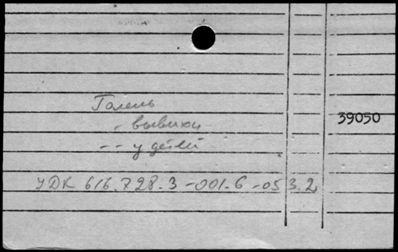 Голень
- вывихи
- - у детей
39050
УДК 616.728.3-001.6-053.2